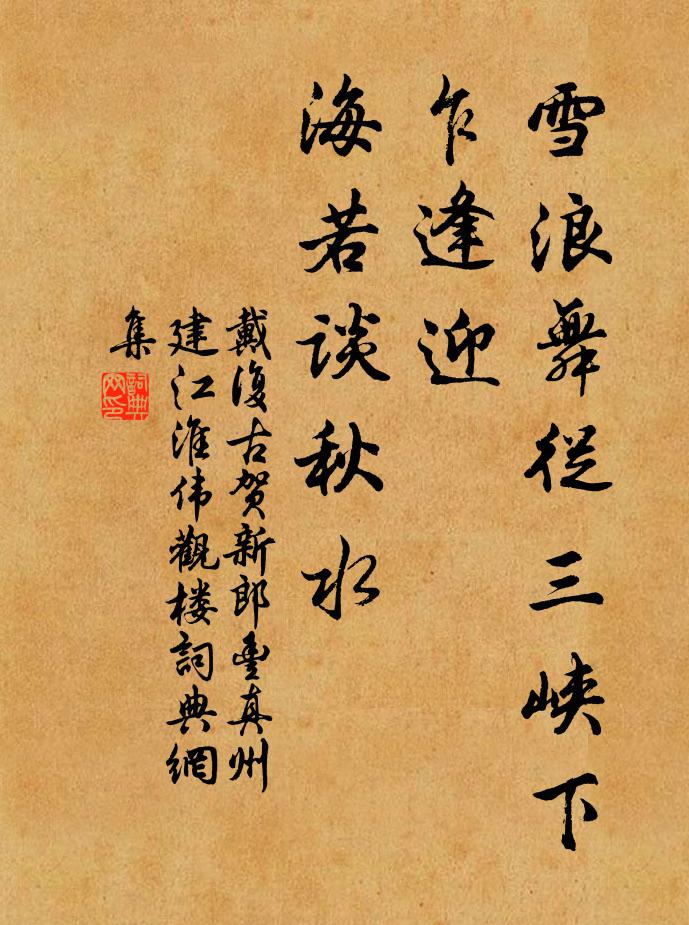 雪浪舞從三峽下
乍逢迎
海若談秋水
戴復古賀新郎豐真州
建江淮伟觀楼詞典網
集
詞典
网印